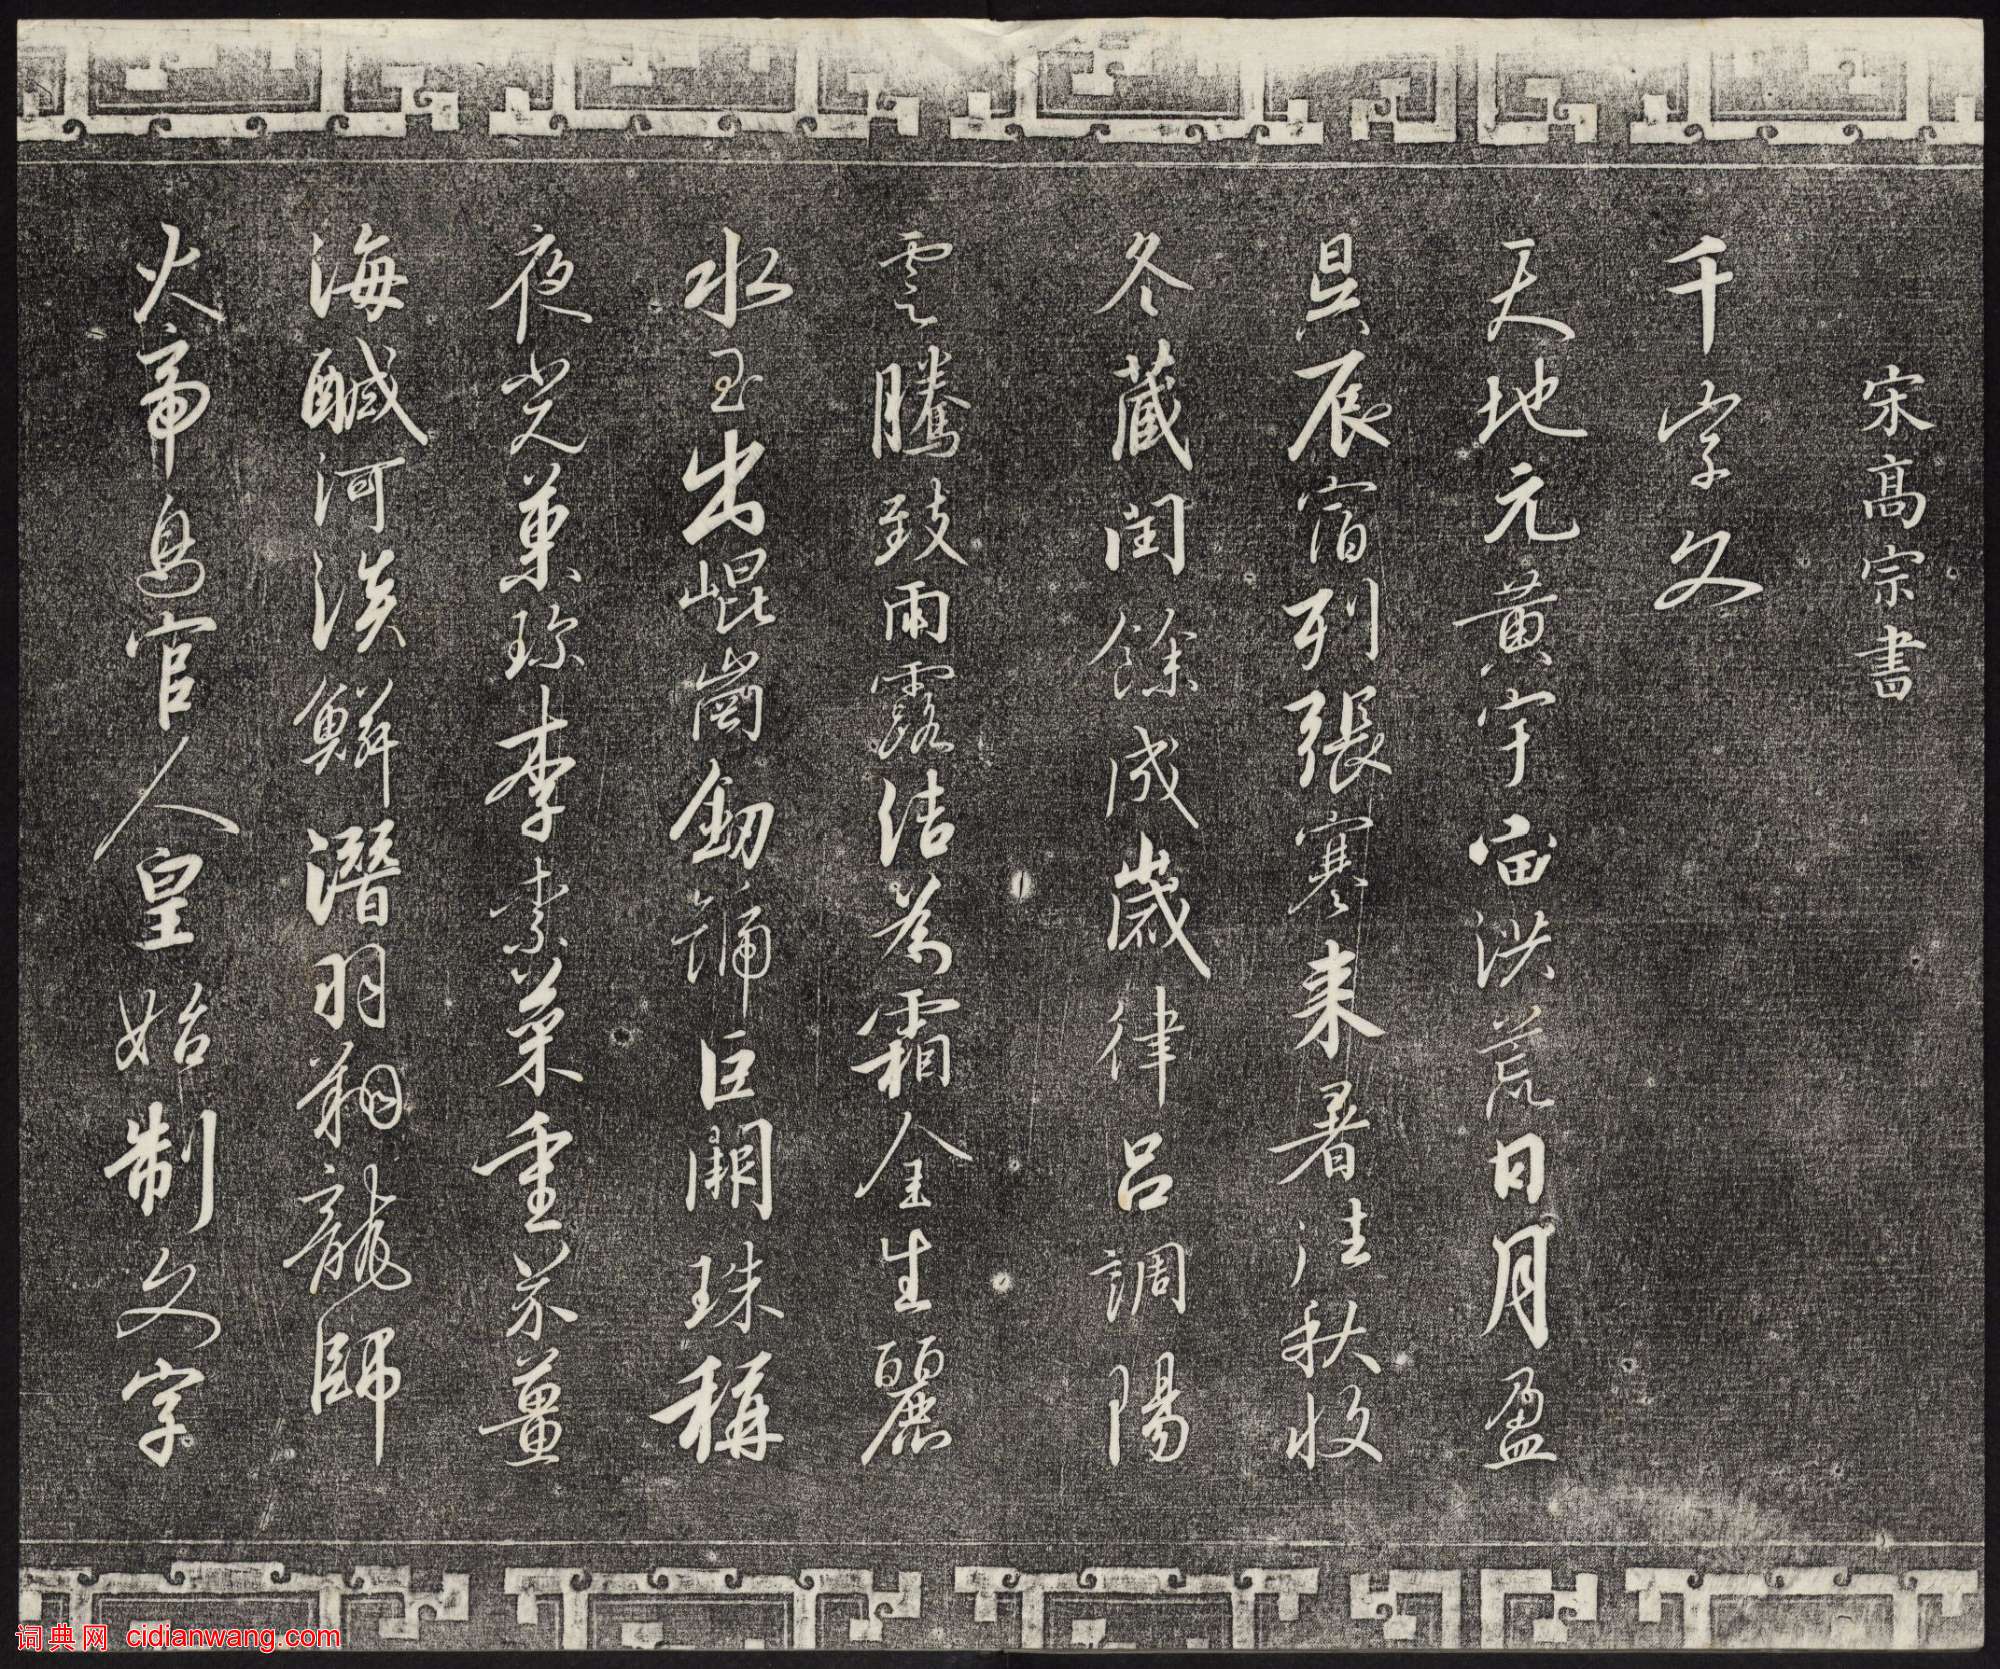 宋高宗書
千字文
天地元黄宇宙洪荒日月盈
昃辰宿列張寒来暑往秋收
冬藏閏餘成歲律呂調陽
雲騰致雨露結為霜金生麗
水玉出崐崗劒號巨闕珠稱
夜光菓珍李柰菜重芥薑
海鹹河淡鱗潛羽翔龍師
火帝鳥官人皇始制文字
词典网 cidianwang.com